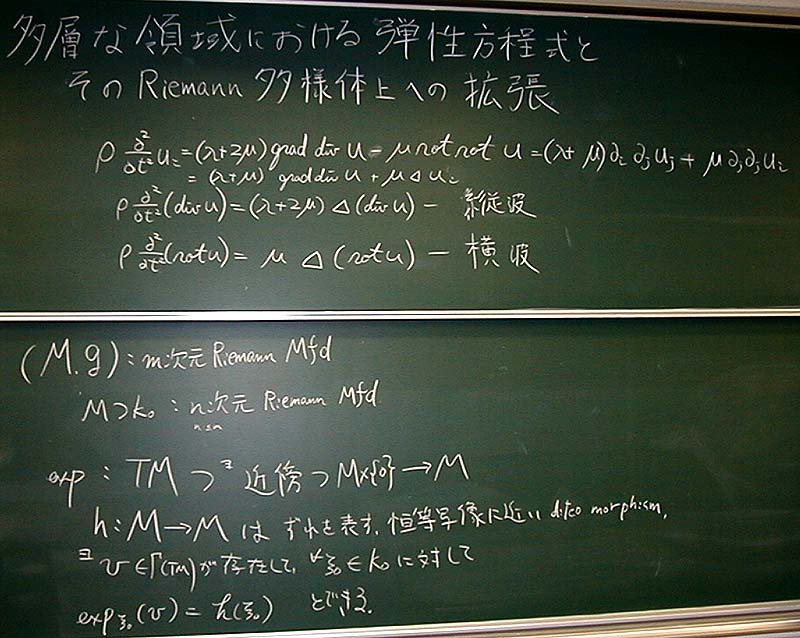 多層な領域における弾性方程式と
そのRiemann多様体上への拡張
ρ ∂²/∂t² uᵢ = (λ+2μ) grad div u − μ rot rot u = (λ+μ)∂ᵢ∂ⱼuⱼ + μ∂ⱼ∂ⱼuᵢ
= (λ+μ) grad div u + μΔuᵢ
ρ ∂²/∂t² (div u) = (λ+2μ) Δ (div u) − 縦波
ρ ∂²/∂t² (rot u) = μ Δ (rot u) − 横波
(M.g) : m次元 Riemann Mfd
M⊃k₀ : n次元 Riemann Mfd
n≤m
exp : TM ⊃ ∃近傍 ⊃ M×{0} → M
h : M→M は ずれを表す, 恒等写像に近い diffeo morphism,
∃v∈Γ(TM)が存在して, ∀ξ₀∈k₀に対して
exp ξ₀(v) = h(ξ₀) とできる.